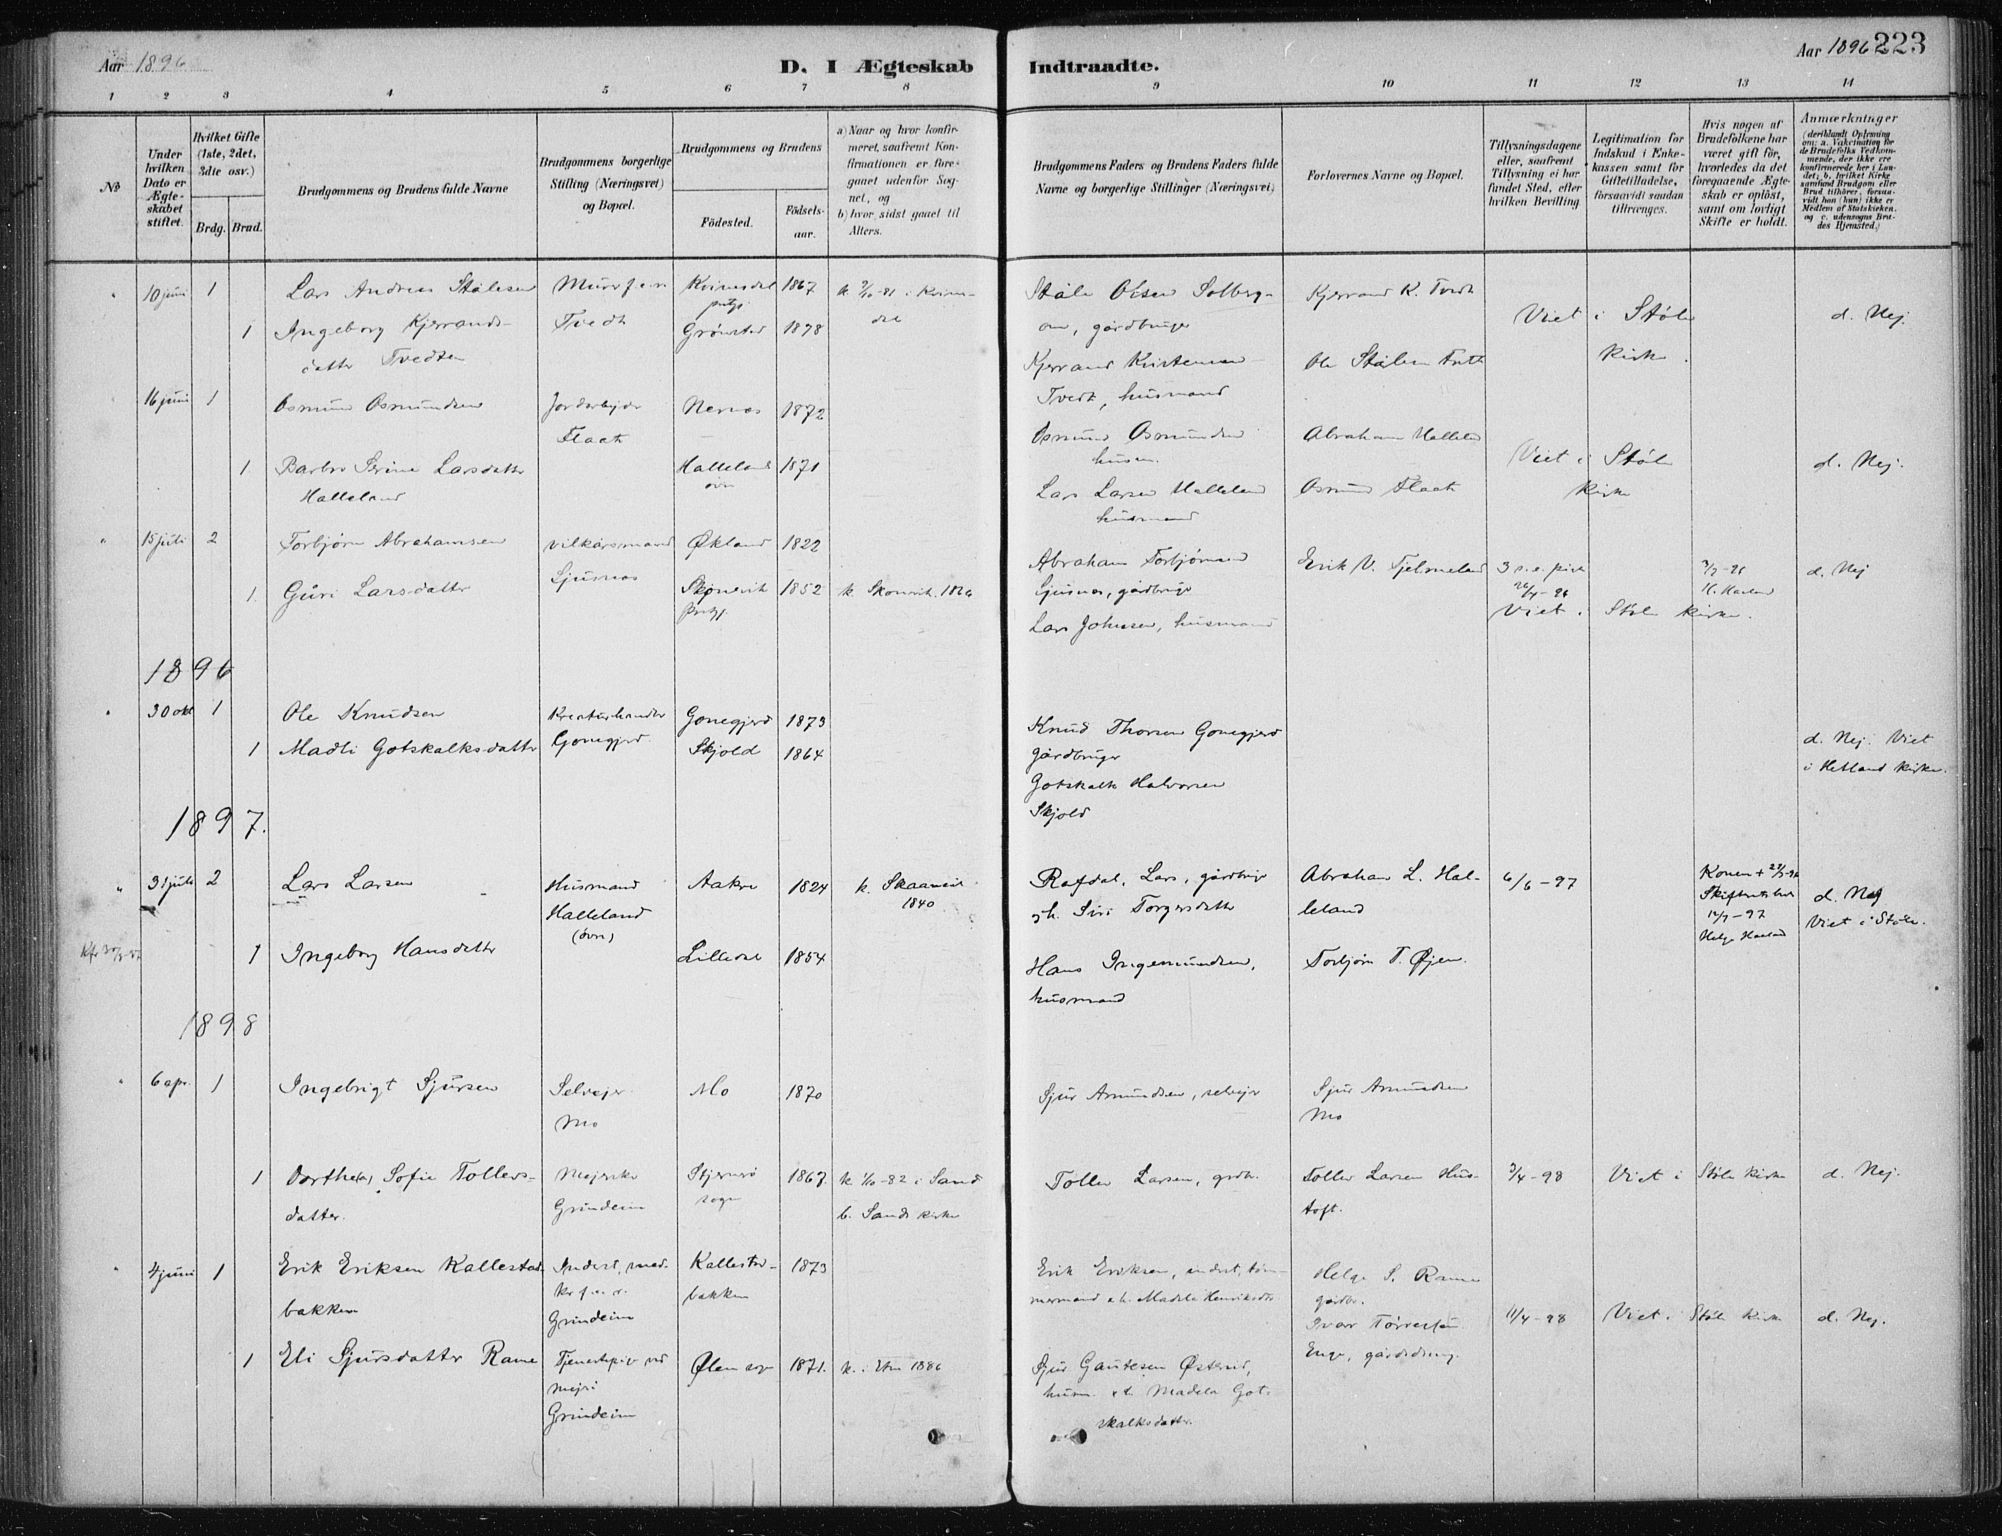 Aar 1896
D. I Ægteskab Indtraadte.
Aar 1896 223
1 2 3 4 5 6 7 8 9 10 11 12 13 14
No
Under hvilken Dato er Ægteskabet stiftet.
Hvilket Gifte (1ste, 2det, 3die osv.)
Brdg. Brud.
Brudgommens og Brudens fulde Navne
Brudgommens borgerlige Stilling (Næringsvei) og Bopæl.
Brudgommens og Brudens
Fødested. Fødselsaar.
a) Naar og hvor konfirmeret, saafremt Konfirmationen er foregaaet udenfor Sognet, og
b) hvor sidst gaaet til Alters.
Brudgommens Faders og Brudens Faders fulde Navne og borgerlige Stillinger (Næringsvei)
Forlovernes Navne og Bopæl.
Tillysningsdagene eller, saafremt Tillysning ei har fundet Sted, efter hvilken Bevilling.
Legitimation for Indskud i Enkekassen samt for Giftetilladelse, forsaavidt saadan tiltrænges.
Hvis nogen af Brudefolkene har været gift før, hvorledes da det foregaaende Ægteskab er opløst, samt om lovligt Skifte er holdt.
Anmærkninger
10 juni 1 Lars Andreas Stålesen
Kvinesdal prstgj 1867
Ståle Olsen Solberg-
Kjerrand K. Tvedt
1 Ingeborg Kjerrands-
datter Tvedten
Tvedt
Grønstad 1878
gårdbruger
Viet i Støle
Kirke.
d. Nej.
Kjerrand Kristensen
Tvedt, husmand
16 juni 1 Osmund Osmundsen
Jordarbejder
Flaat
Nernes 1872
Osmund Osmundsen
husm.
Abraham Halleland
1. Barbro Serine Larsdatter
Halleland
Halleland
øvre
1871
Lars Larsen Halleland
husmand
Osmund Flaat
Viet i Støle
Kirke
d. Nej.
15 juli 2 Torbjørn Abrahamsen
vilkårsmand
Ljusnes
Økland 1822
Abraham Torbjørnsen
Ljusnes, gårdbruger
Erik V. Tjelmeland
d. Nej
1. Guri Larsdatter
Skonevik
Prstgj.
1852
k. Skonevik
Lars Johnsen, husmand
Viet i Støle Kirke.
1896
30 okt 1 Ole Knudsen
Kreaturhandler
Gonegjerd
Gonegjerd 1873
Knud Thorsen Gonegjerd
gårdbruger
1 Madli Gotskalksdatter
Skjold 1864
Gotskalk Halvorsen
Skjold
d. Nej. Viet
i Hetland Kirke.
1897.
31 juli 2 Lars Larsen
Husmand
Halleland
(øvre)
Aakre 1824
k. Skaanevik
1840
Rafdal, Lars, gårdbruger
gh. Siri Torgersdatter
Abraham L. Hal-
leland
6/6-97
Konen +
Skifteattest
12/7-97
Helge Havland
d. Nej
Viet i Støle.
1 Ingeborg Hansdatter
Lilledal 1854
Hans Ingemundsen,
husmand
Torbjørn T. Øjen.
1898
6 apr. 1 Ingebrigt Sjursen
Selvejer
Mo
Mo 1870
Sjur Amundsen, selvejer
Sjur Amundsen
Mo
1 Dorthea Sofie Tollers-
datter.
Mejerske
Grindeim
Stjernerø
sogn
1867.
k. 1/10-82 i Sand
b. Sands kirke
Toller Larsen, grdb.
Toller Larsen Hus-
toft.
3/4-98
Viet i Støle Kirke
d. Nej.
4 juni 1 Erik Eriksen Kallestad-
bakken
Inderst, med-
Grindeim
Kallestad-
bakken
1873
Erik Eriksen, inderst, tøm-
mermand & h. Madela Henriksdtr
Helge S. Rame
gårdbr.
Ivar Tørresen
Enge, gårddreng.
11/4-98
Viet i Støle Kirke
d. Nej.
1 Eli Sjursdatter Rame
Tjenestepige ved
mejeri
Grindeim
Ølen sogn 1871.
k. i Etne 1886
Sjur Gautesen Østervid,
husm. & h. Madela Got-
skalksdatter.